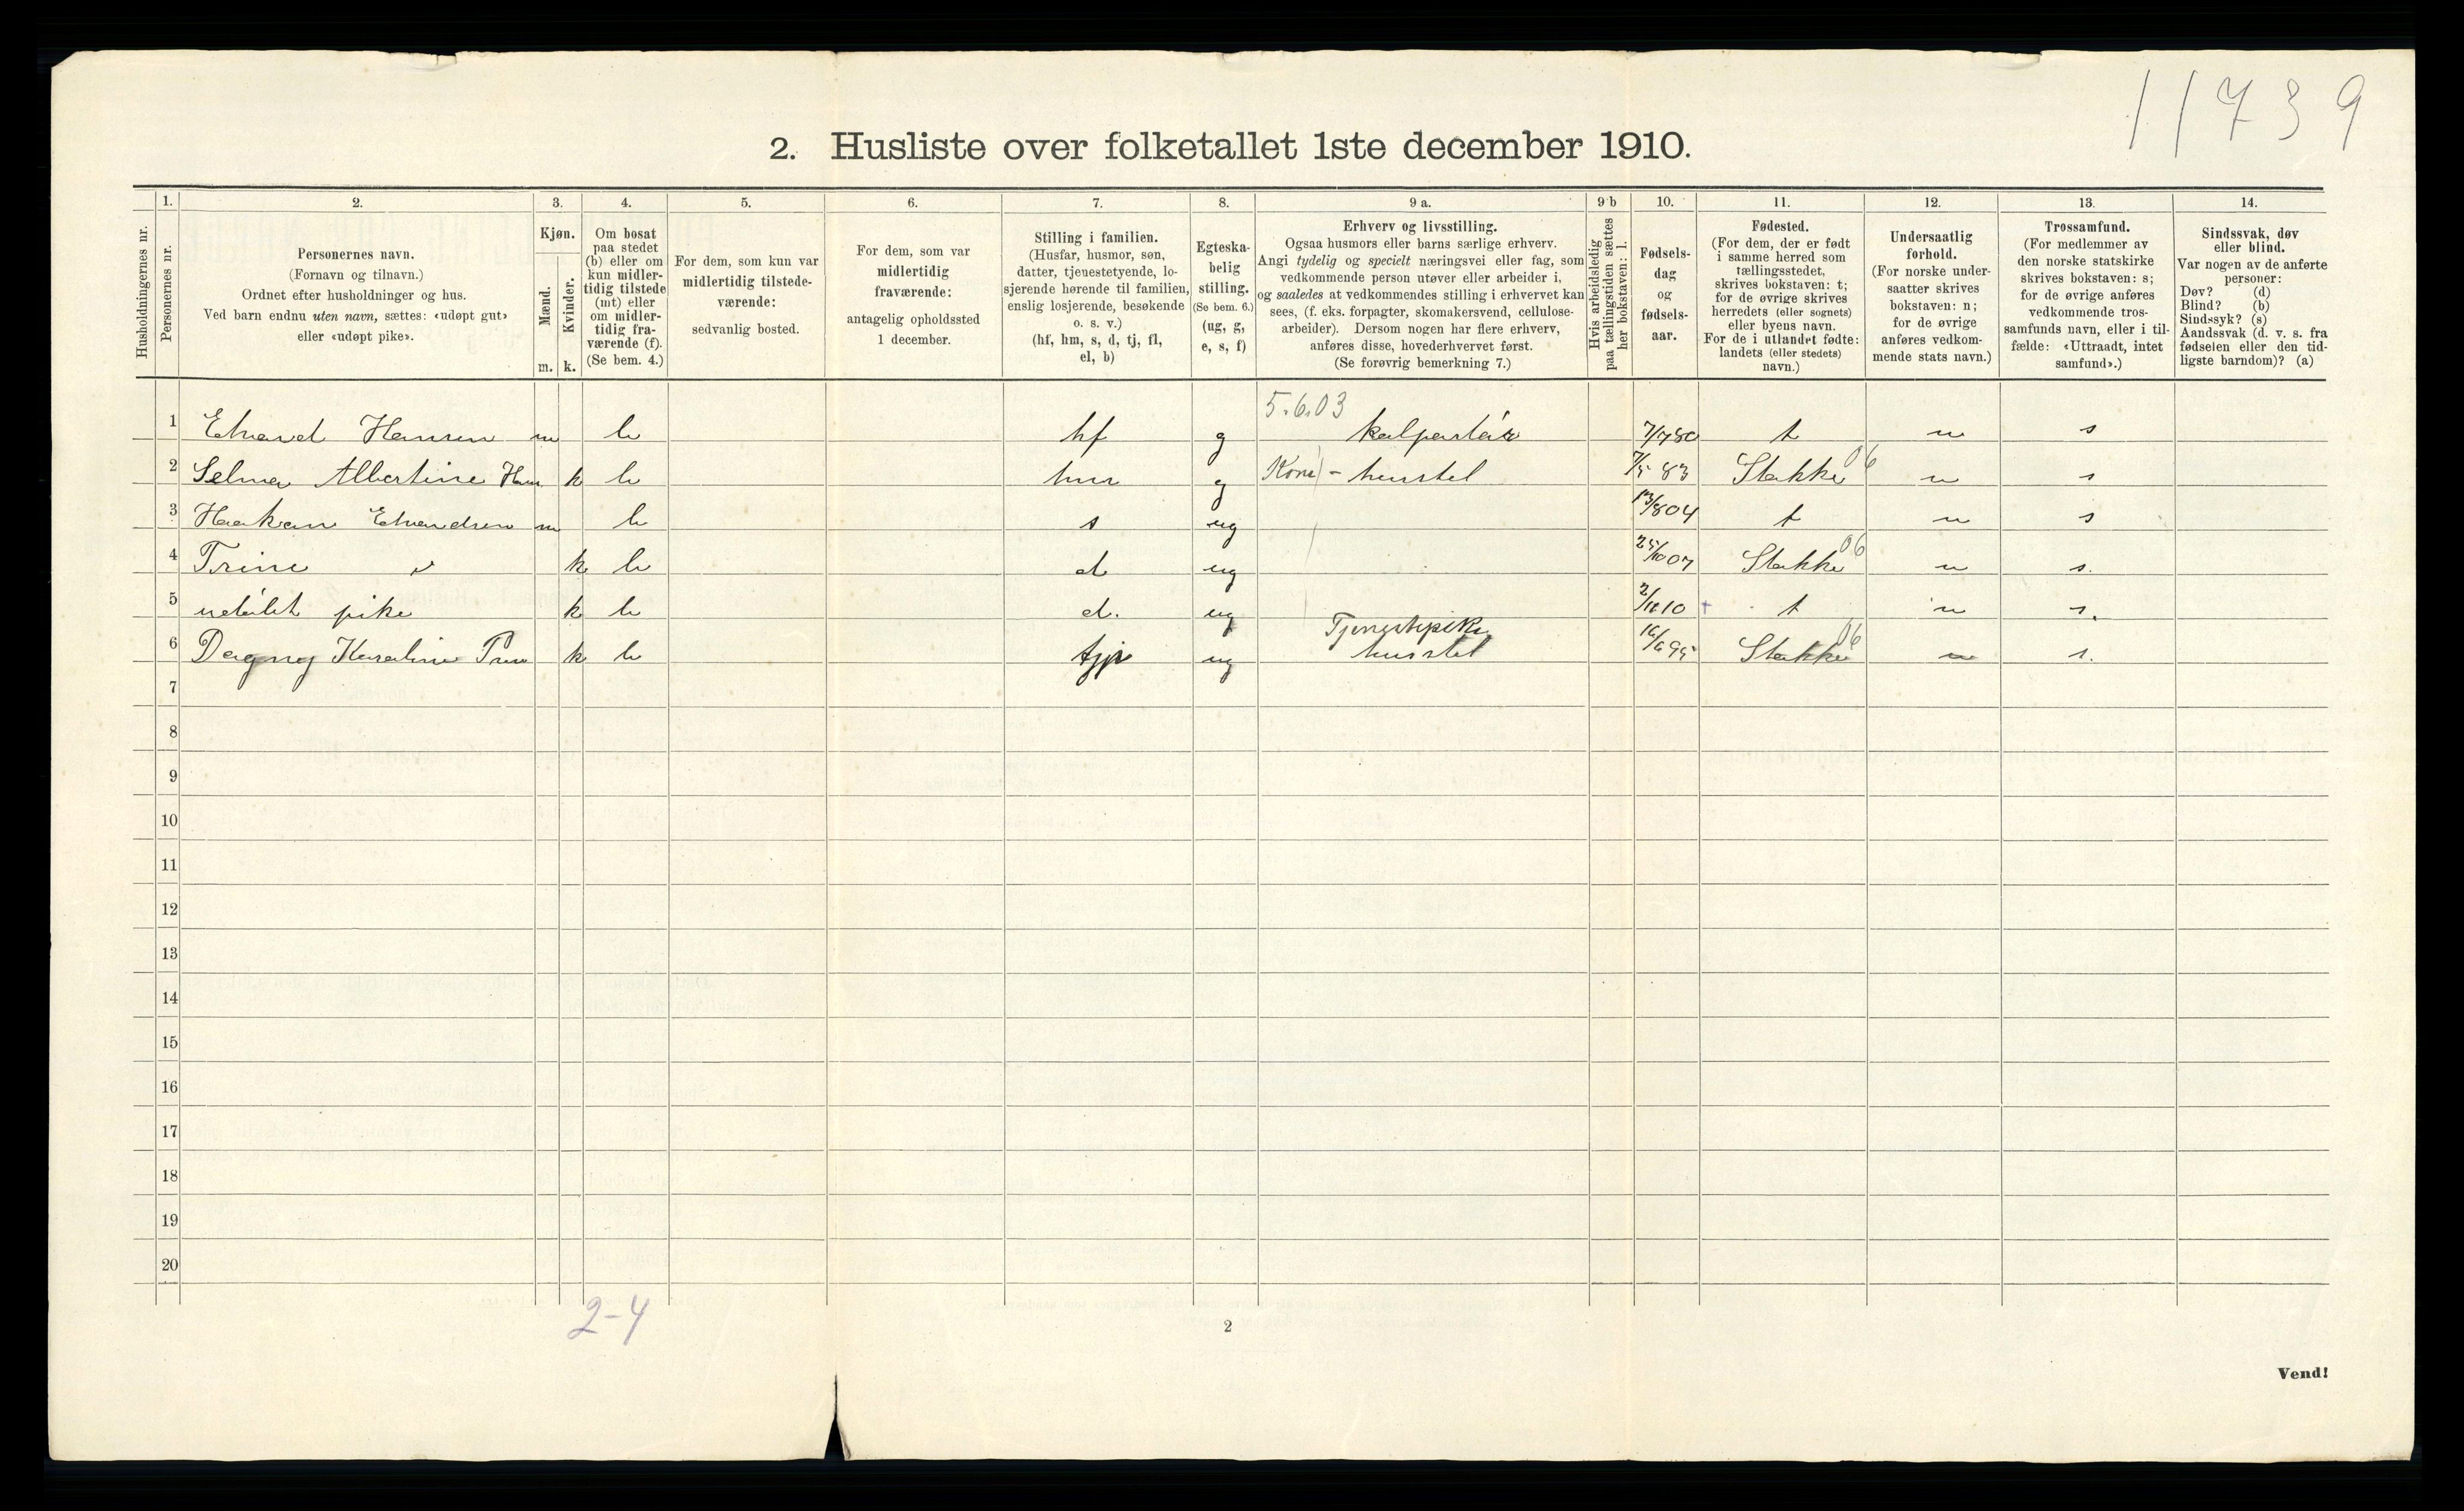 11739
2. Husliste over folketallet 1ste december 1910.
Husholdningernes nr.
1.
Personernes nr.
2.
Personernes navn.
(Fornavn og tilnavn.)
Ordnet efter husholdninger og hus.
Ved barn endnu uten navn, sættes: «udøpt gut»
eller «udøpt pike».
3.
Kjøn.
Mænd.
m.
Kvinder.
k.
4.
Om bosat
paa stedet
(b) eller om
kun midler-
tidig tilstede
(mt) eller
om midler-
tidig fra-
værende (f).
(Se bem. 4.)
5.
For dem, som kun var
midlertidig tilstede-
værende:
sedvanlig bosted.
6.
For dem, som var
midlertidig
fraværende:
antagelig opholdssted
1 december.
7.
Stilling i familien.
(Husfar, husmor, søn,
datter, tjenestetyende, lo-
sjerende hørende til familien,
enslig losjerende, besøkende
o. s. v.)
(hf, hm, s, d, tj, fl,
el, b)
8.
Egteska-
belig
stilling.
(Se bem. 6.)
(ug, g,
e, s, f)
9 a.
Erhverv og livsstilling.
Ogsaa husmors eller barns særlige erhverv.
Angi tydelig og specielt næringsvei eller fag, som
vedkommende person utøver eller arbeider i,
og saaledes at vedkommendes stilling i erhvervet kan
sees, (f. eks. forpagter, skomakersvend, cellulose-
arbeider). Dersom nogen har flere erhverv,
anføres disse, hovederhvervet først.
(Se forøvrig bemerkning 7.)
9 b
Hvis arbeidsledig
paa tællingstiden sættes
her bokstaven: l.
10.
Fødsels-
dag
og
fødsels-
aar.
11.
Fødested.
(For dem, der er født
i samme herred som
tællingsstedet,
skrives bokstaven: t;
for de øvrige skrives
herredets (eller sognets)
eller byens navn.
For de i utlandet fødte:
landets (eller stedets)
navn.)
12.
Undersaatlig
forhold.
(For norske under-
saatter skrives
bokstaven: n;
for de øvrige
anføres vedkom-
mende stats navn.)
13.
Trossamfund.
(For medlemmer av
den norske statskirke
skrives bokstaven: s;
for de øvrige anføres
vedkommende tros-
samfunds navn, eller i til-
fælde: «Uttraadt, intet
samfund».)
14.
Sindssvak, døv
eller blind.
Var nogen av de anførte
personer:
Døv? (d)
Blind? (b)
Sindssyk? (s)
Aandssvak (d. v. s. fra
fødselen eller den tid-
ligste barndom)? (a)
5.6.03
1 Edvard Hansen m b hf g t n s
2 Selma Albertine Han k b hm g Kone - husstel 7/5 83 Stokke 06 n s
3 Haakon Edvardsen m b s ug 13/8 04 t n s
4 Trine k b d ug 25/10 07 Stokke 06 n s.
5 udøbt pike k b d. ug 2/11 10 t n s.
Tjenestepike
6 Dagny Karoline k b tjp ug husstel 16/6 95 Stokke 06 n s.
7
8
9
10
11
12
13
14
15
16
17
18
19
20
2-4
2
Vend!